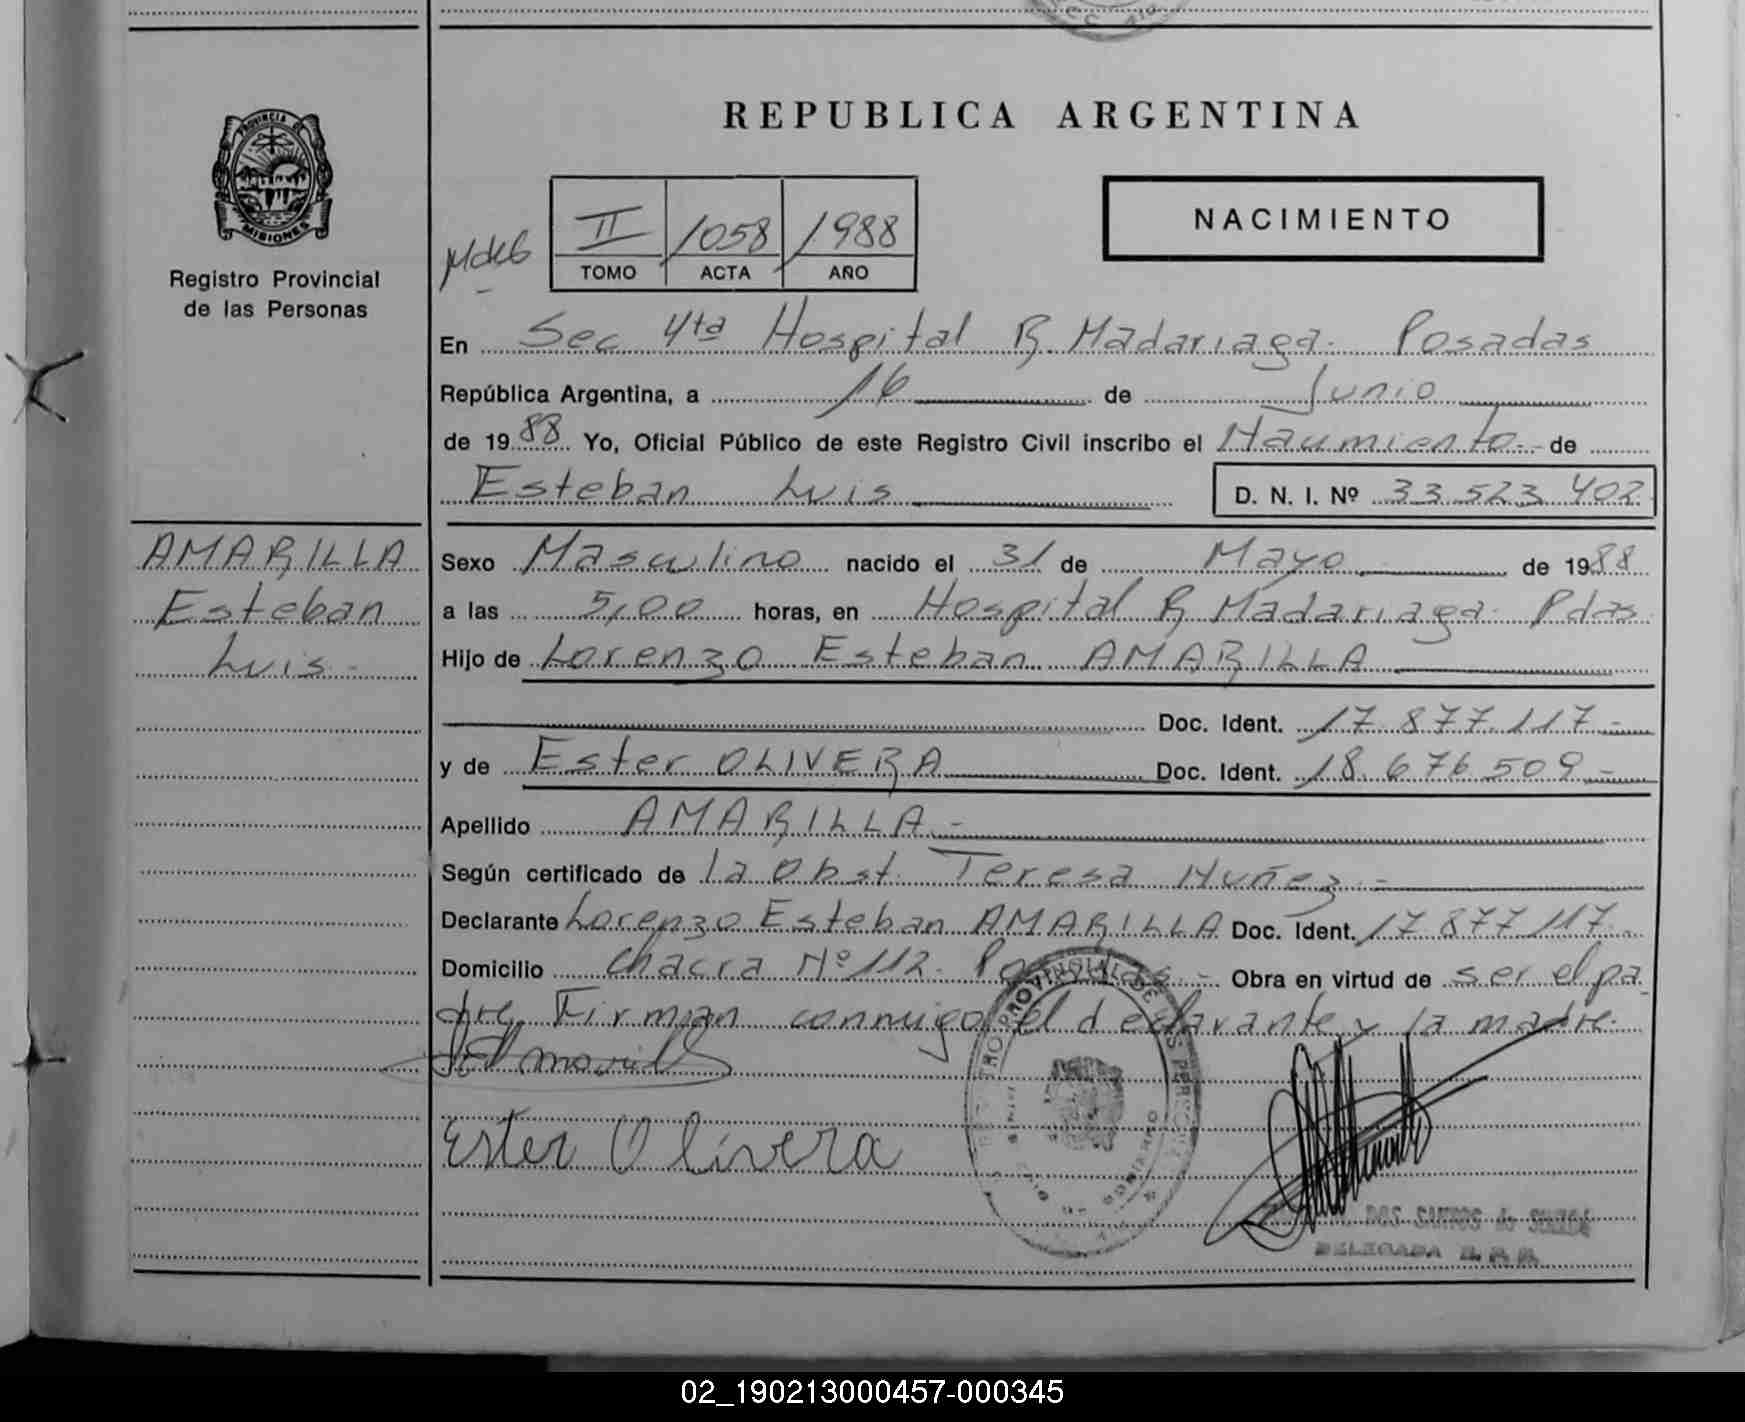 REPUBLICA ARGENTINA
PROVINCIA DE
MISIONES
Registro Provincial
de las Personas
II 1058 1988
TOMO ACTA AÑO
NACIMIENTO
En Sec 4ta Hospital R. Madariaga. Posadas
República Argentina, a 16 de Junio
de 1988 Yo, Oficial Público de este Registro Civil inscribo el Nacimiento de
Esteban Luis D. N. I. Nº 33.523.402
AMARILLA
Esteban
Luis.-
Sexo Masculino nacido el 31 de Mayo de 1988
a las 5,00 horas, en Hospital R Madariaga. Pdas
Hijo de Lorenzo Esteban AMARILLA
Doc. Ident. 17.877.117.-
y de Ester OLIVERA Doc. Ident. 18.676.509.-
Apellido AMARILLA.-
Según certificado de la Obst. Teresa Nuñez.-
Declarante Lorenzo Esteban AMARILLA Doc. Ident. 17.877.117.
Domicilio Chacra Nº 112. Posadas.- Obra en virtud de ser el pa
dre. Firman conmigo el declarante y la madre.
Ester Olivera
DOS SANTOS de
DELEGADA R. P. P.
02_190213000457-000345